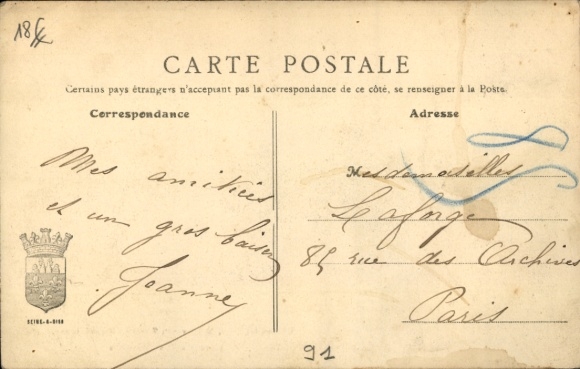 CARTE POSTALE
Certains pays étrangers n'acceptant pas la correspondance de ce côté, se renseigner à la Poste.
Correspondance
Mes amitiés
et un gros baiser
Joanne
Adresse
Mesdemoiselles
Laforge
85 rue des Archives
Paris
91